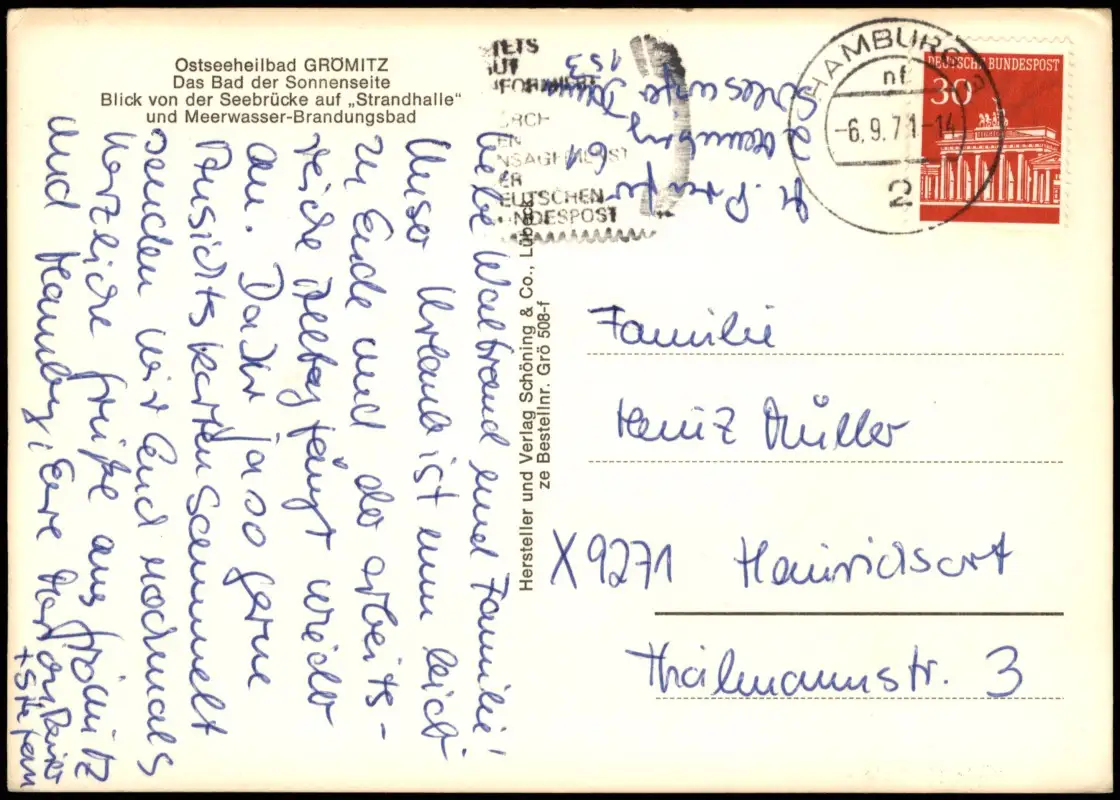 Ostseeheilbad GRÖMITZ
Das Bad der Sonnenseite
Blick von der Seebrücke auf „Strandhalle"
und Meerwasser-Brandungsbad
Liebe Waltraud und Familie!
Unser Urlaub ist nun leider
zu Ende und der arbeits-
reiche Alltag fängt wieder
an. Da Ihr ja so gerne
Ansichtskarten sammelt
senden wir Euch nochmals
herzliche Grüße aus Grömitz
und Hamburg, Eure
+ Stefan
Hersteller und Verlag Schöning & Co., Lübeck
ze Bestellnr. Grö 508-f
2 Hamburg 61
153
STETS
GUT
INFORMIERT
DURCH
DEN
ANSAGEDIENST
DER
DEUTSCHEN
BUNDESPOST
HAMBURG
nf
-6.9.71-14
2
DEUTSCHE BUNDESPOST
30
Familie
Heinz Müller
X9271 Heinrichsort
Thälmannstr. 3